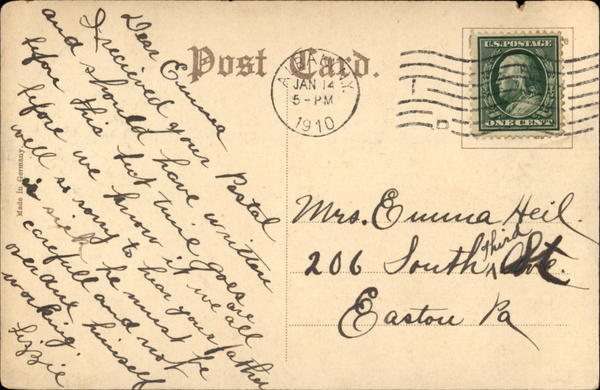 Post Card.
Dear Emma
I recieved your Postal
and should have written
before this but time goes
before we know it we all
well so sorry to hear your father
is sick he must be
carefull and not
over do himself
working.
Lizzie
Made in Germany.
JAN 14
5-PM
1910
U.S. POSTAGE
ONE CENT
Mrs. Emma Heil.
206 South Third St.
Easton Pa